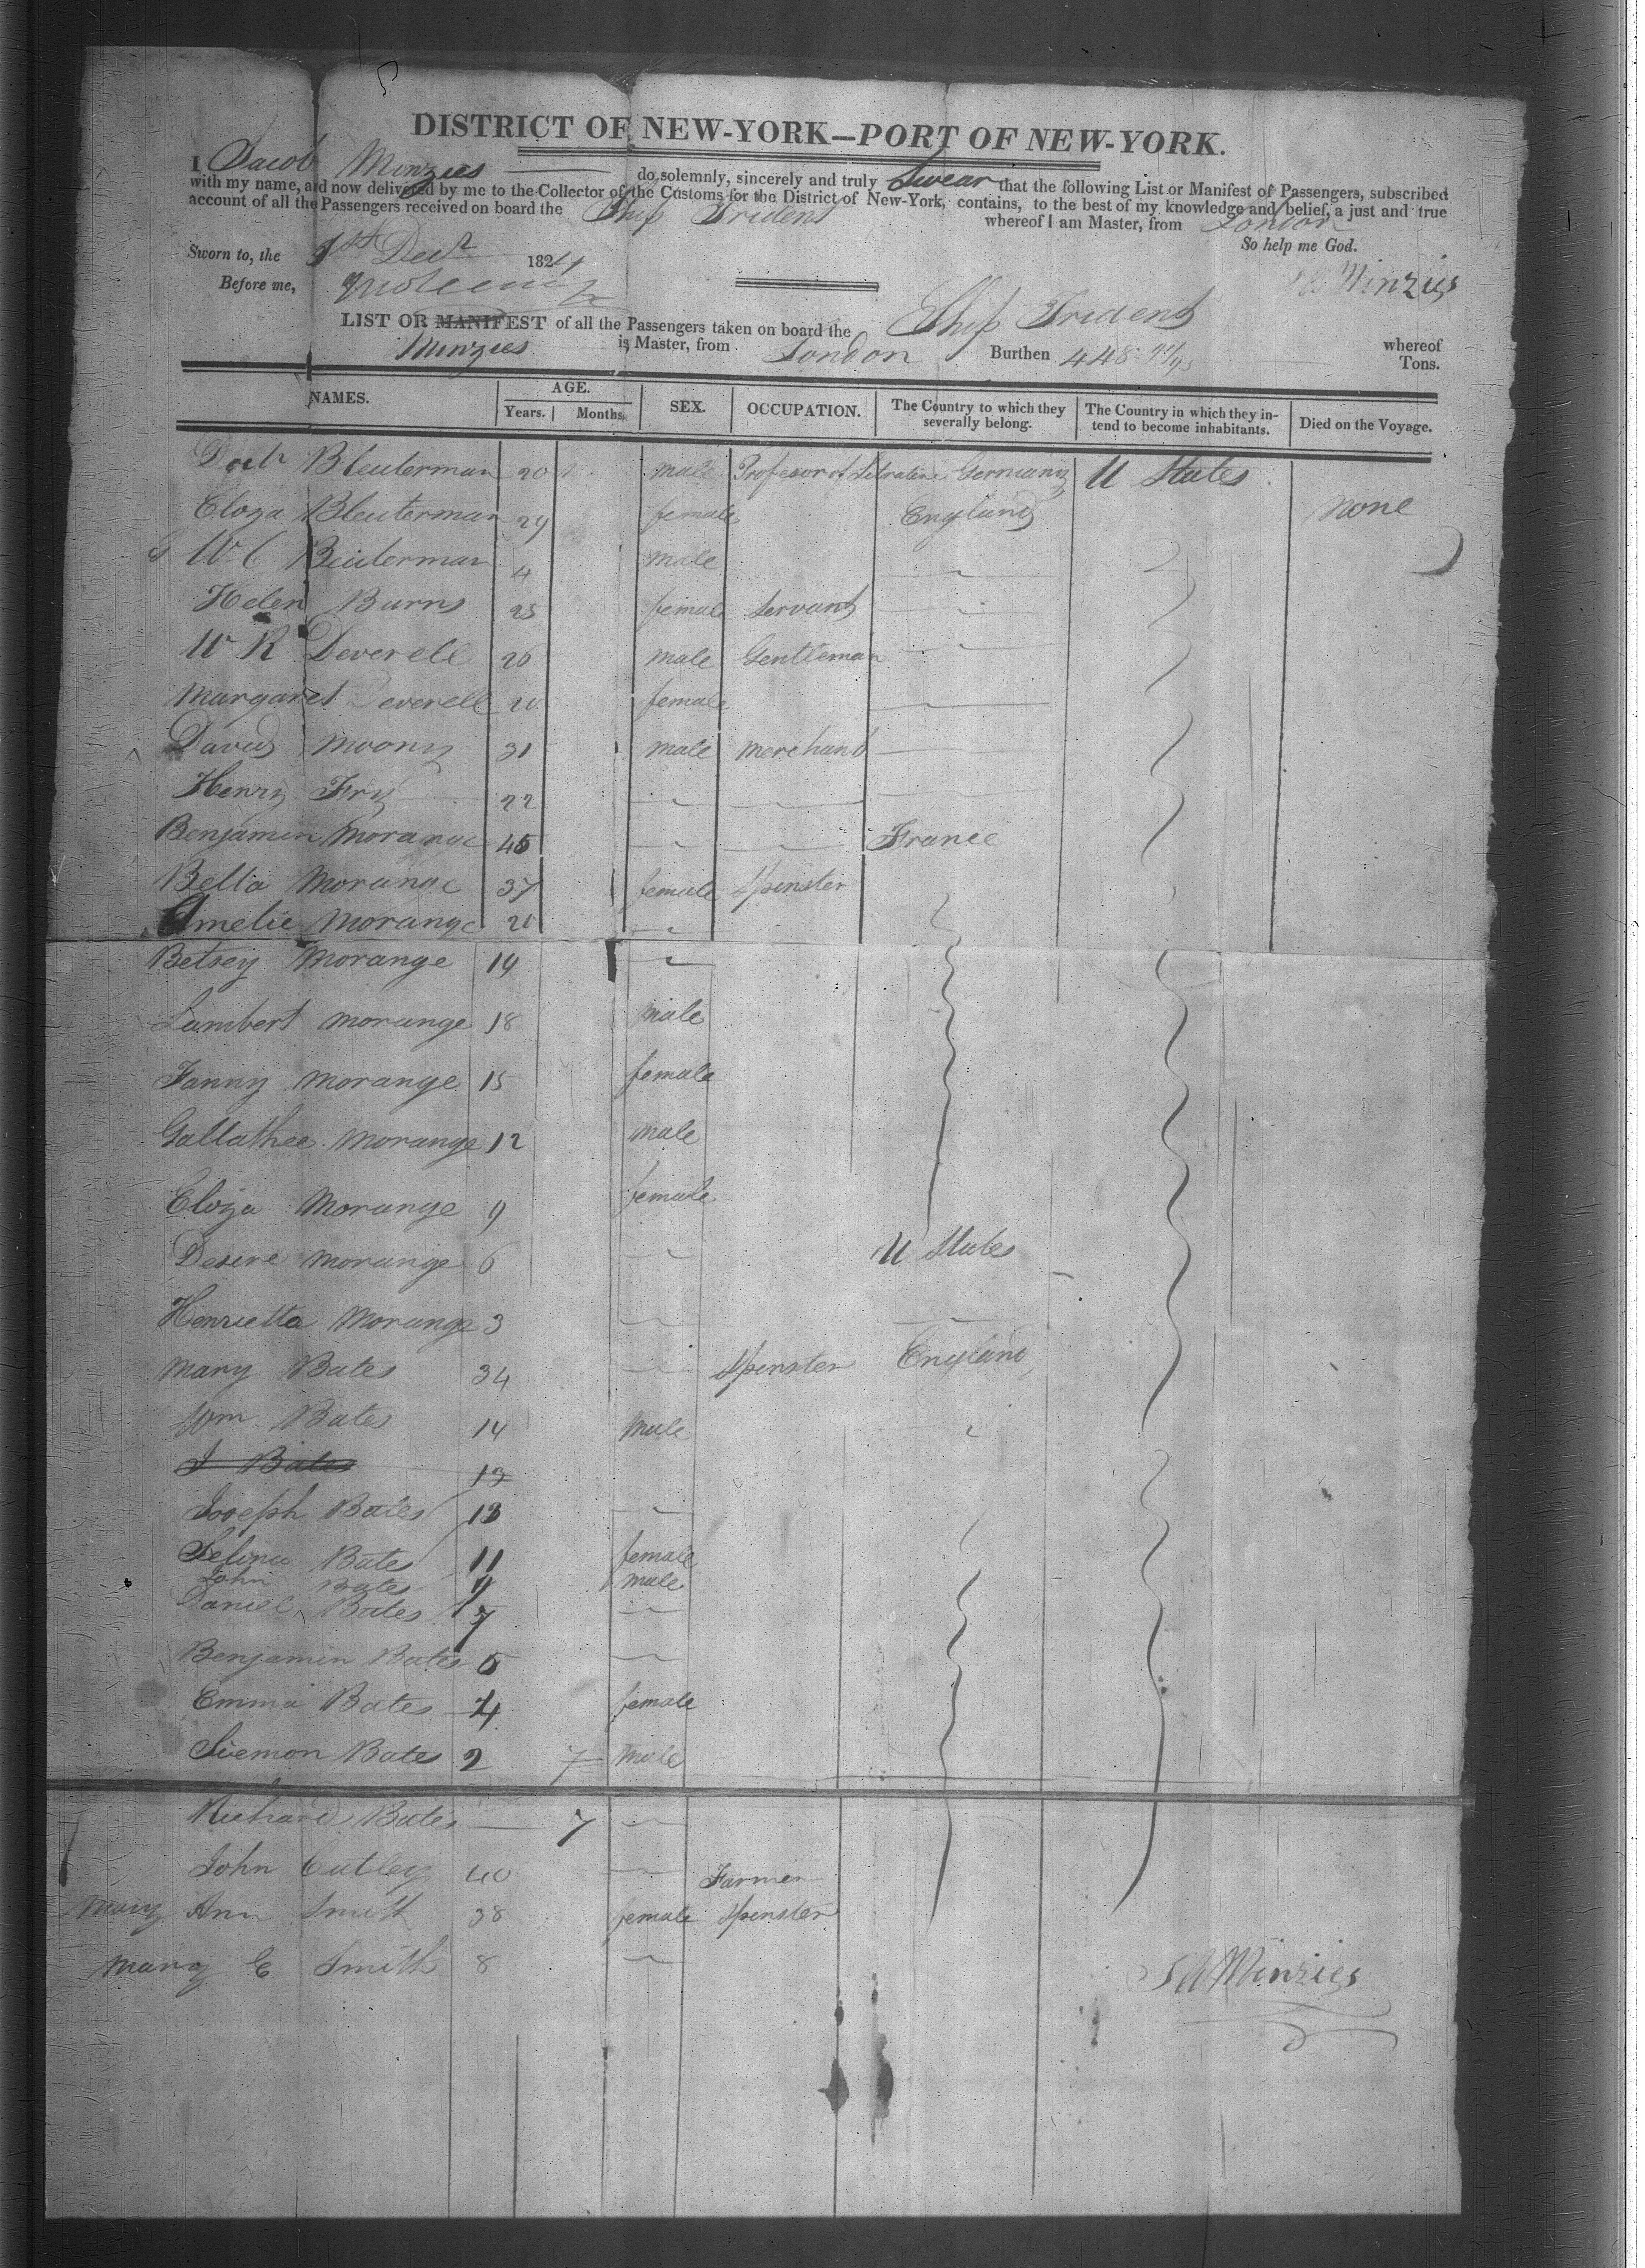 DISTRICT OF NEW-YORK—PORT OF NEW-YORK.
I Jacob Minzies do solemnly, sincerely and truly Swear that the following List or Manifest of Passengers, subscribed
with my name, and now delivered by me to the Collector of the Customs for the District of New-York, contains, to the best of my knowledge and belief, a just and true
account of all the Passengers received on board the Ship Trident whereof I am Master, from London
So help me God.
Sworn to, the 1st Decr 1824
Before me,
Minzies
LIST OR MANIFEST of all the Passengers taken on board the Ship Trident whereof
Minzies is Master, from London Burthen 448 Tons.
NAMES. AGE. Years. Months. SEX. OCCUPATION. The Country to which they severally belong. The Country in which they intend to become inhabitants. Died on the Voyage.
Bleuterman male Profesor of Litrature Germany U States
Eloza Bleuterman 29 female England None
W C Bleuterman 4 male
Helen Burns 25 female Servant
W R Deverell 26 male Gentleman
Margaret Deverell 20 female
David Moony 31 male Merchant
Henry Fry 22
Benjamin Morange 45 France
Bella Morange 37 female Spinster
Amelie Morange
Betsey Morange 14
Lambert Morange 18 male
Fanny Morange 15 female
Gallathee Morange 12 male
Eloza Morange 9 female
Desire Morange 6 U States
Henrietta Morange 3
Mary Bates 34 Spinster England
Wm. Bates 14 Male
J Bates 13
Joseph Bates 13
Selina Bates 11 female
John Bates 9 male
Daniel Bates 7
Benjamin Bates 5
Emma Bates 4 female
Siemon Bates 2 7 Male
Richard Bates 7
John Cutley 40 Farmer
Mary Ann Smith 38 female Spinster
Mary E Smith 8
Minzies